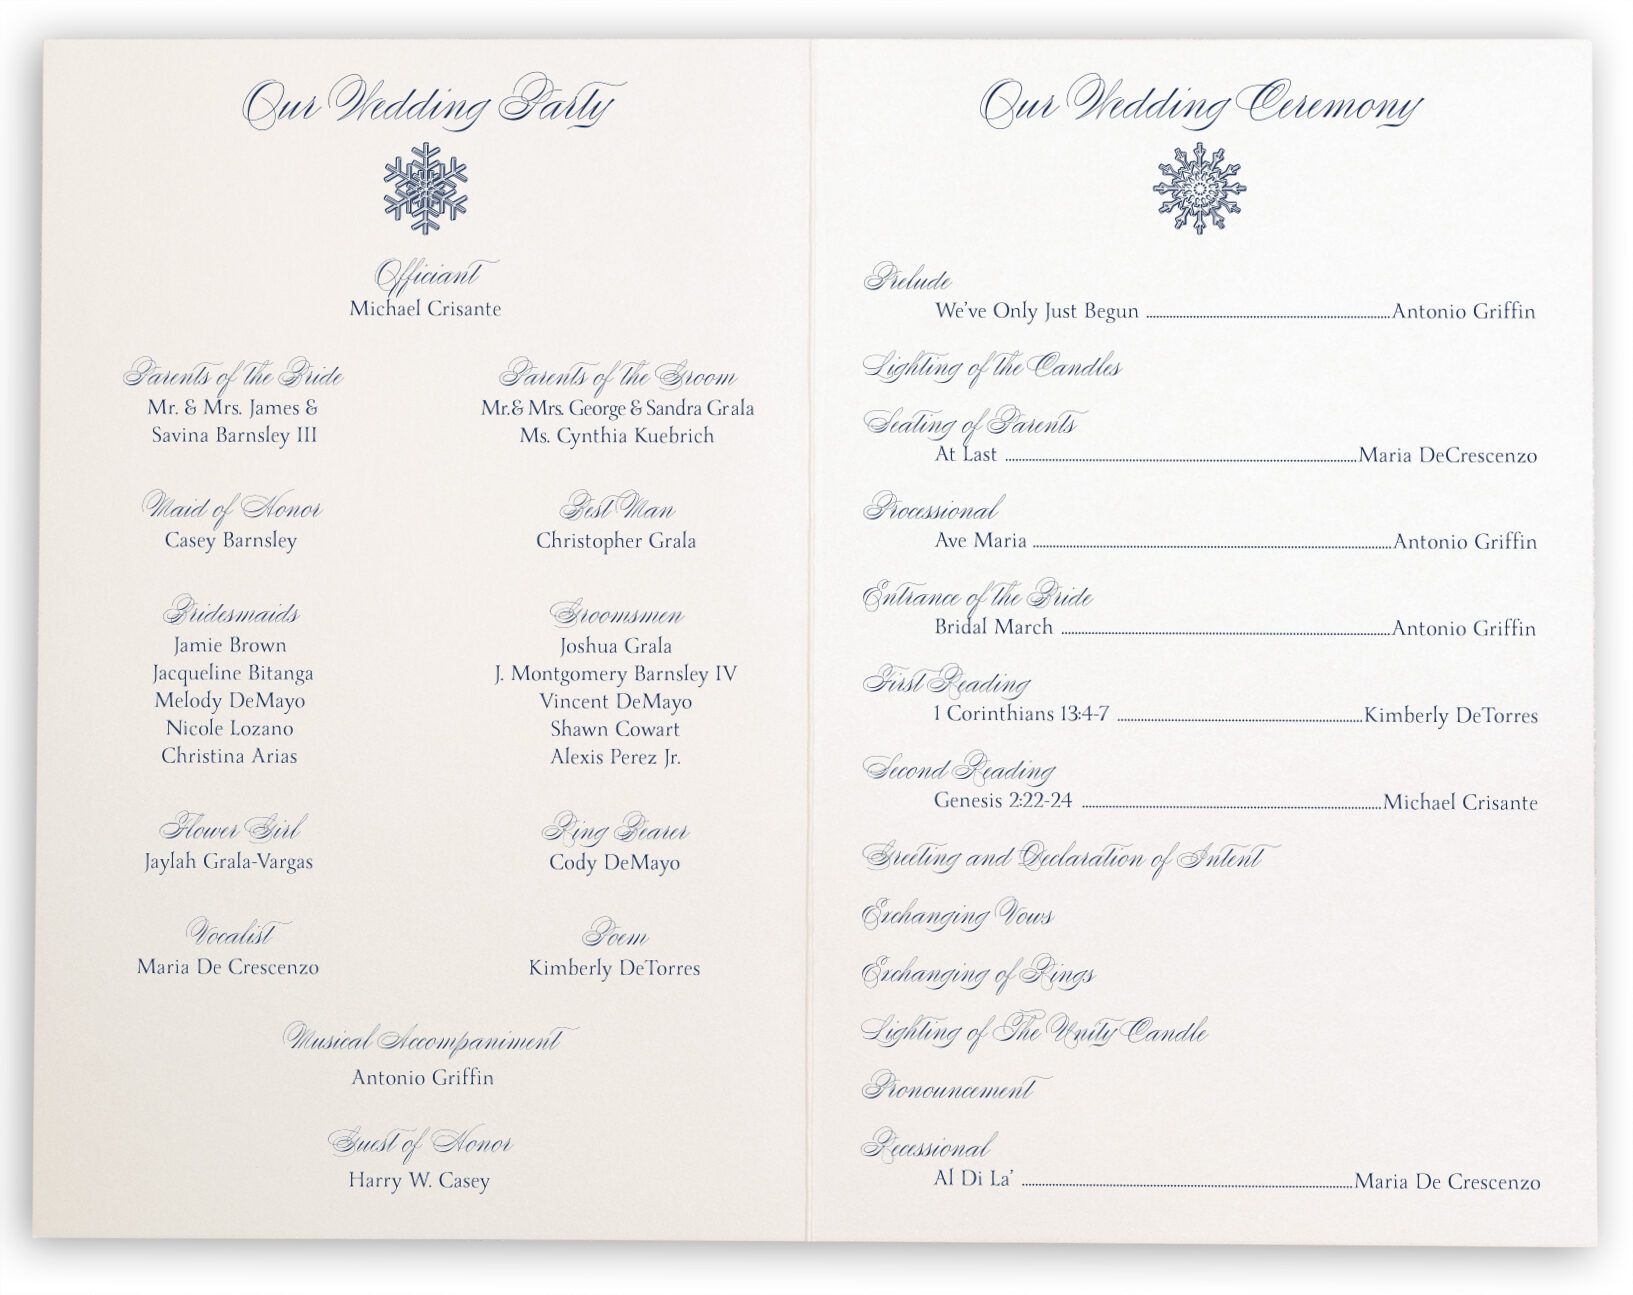 Our Wedding Party
Officiant
Michael Crisante
Parents of the Bride
Mr. & Mrs. James &
Savina Barnsley III
Parents of the Groom
Mr.& Mrs. George & Sandra Grala
Ms. Cynthia Kuebrich
Maid of Honor
Casey Barnsley
Best Man
Christopher Grala
Bridesmaids
Jamie Brown
Jacqueline Bitanga
Melody DeMayo
Nicole Lozano
Christina Arias
Groomsmen
Joshua Grala
J. Montgomery Barnsley IV
Vincent DeMayo
Shawn Cowart
Alexis Perez Jr.
Flower Girl
Jaylah Grala-Vargas
Ring Bearer
Cody DeMayo
Vocalist
Maria De Crescenzo
Poem
Kimberly DeTorres
Musical Accompaniment
Antonio Griffin
Guest of Honor
Harry W. Casey
Our Wedding Ceremony
Prelude
We've Only Just Begun ........ Antonio Griffin
Lighting of the Candles
Seating of Parents
At Last ........ Maria DeCrescenzo
Processional
Ave Maria ........ Antonio Griffin
Entrance of the Bride
Bridal March ........ Antonio Griffin
First Reading
1 Corinthians 13:4-7 ........ Kimberly DeTorres
Second Reading
Genesis 2:22-24 ........ Michael Crisante
Greeting and Declaration of Intent
Exchanging Vows
Exchanging of Rings
Lighting of The Unity Candle
Pronouncement
Recessional
Al Di La' ........ Maria De Crescenzo